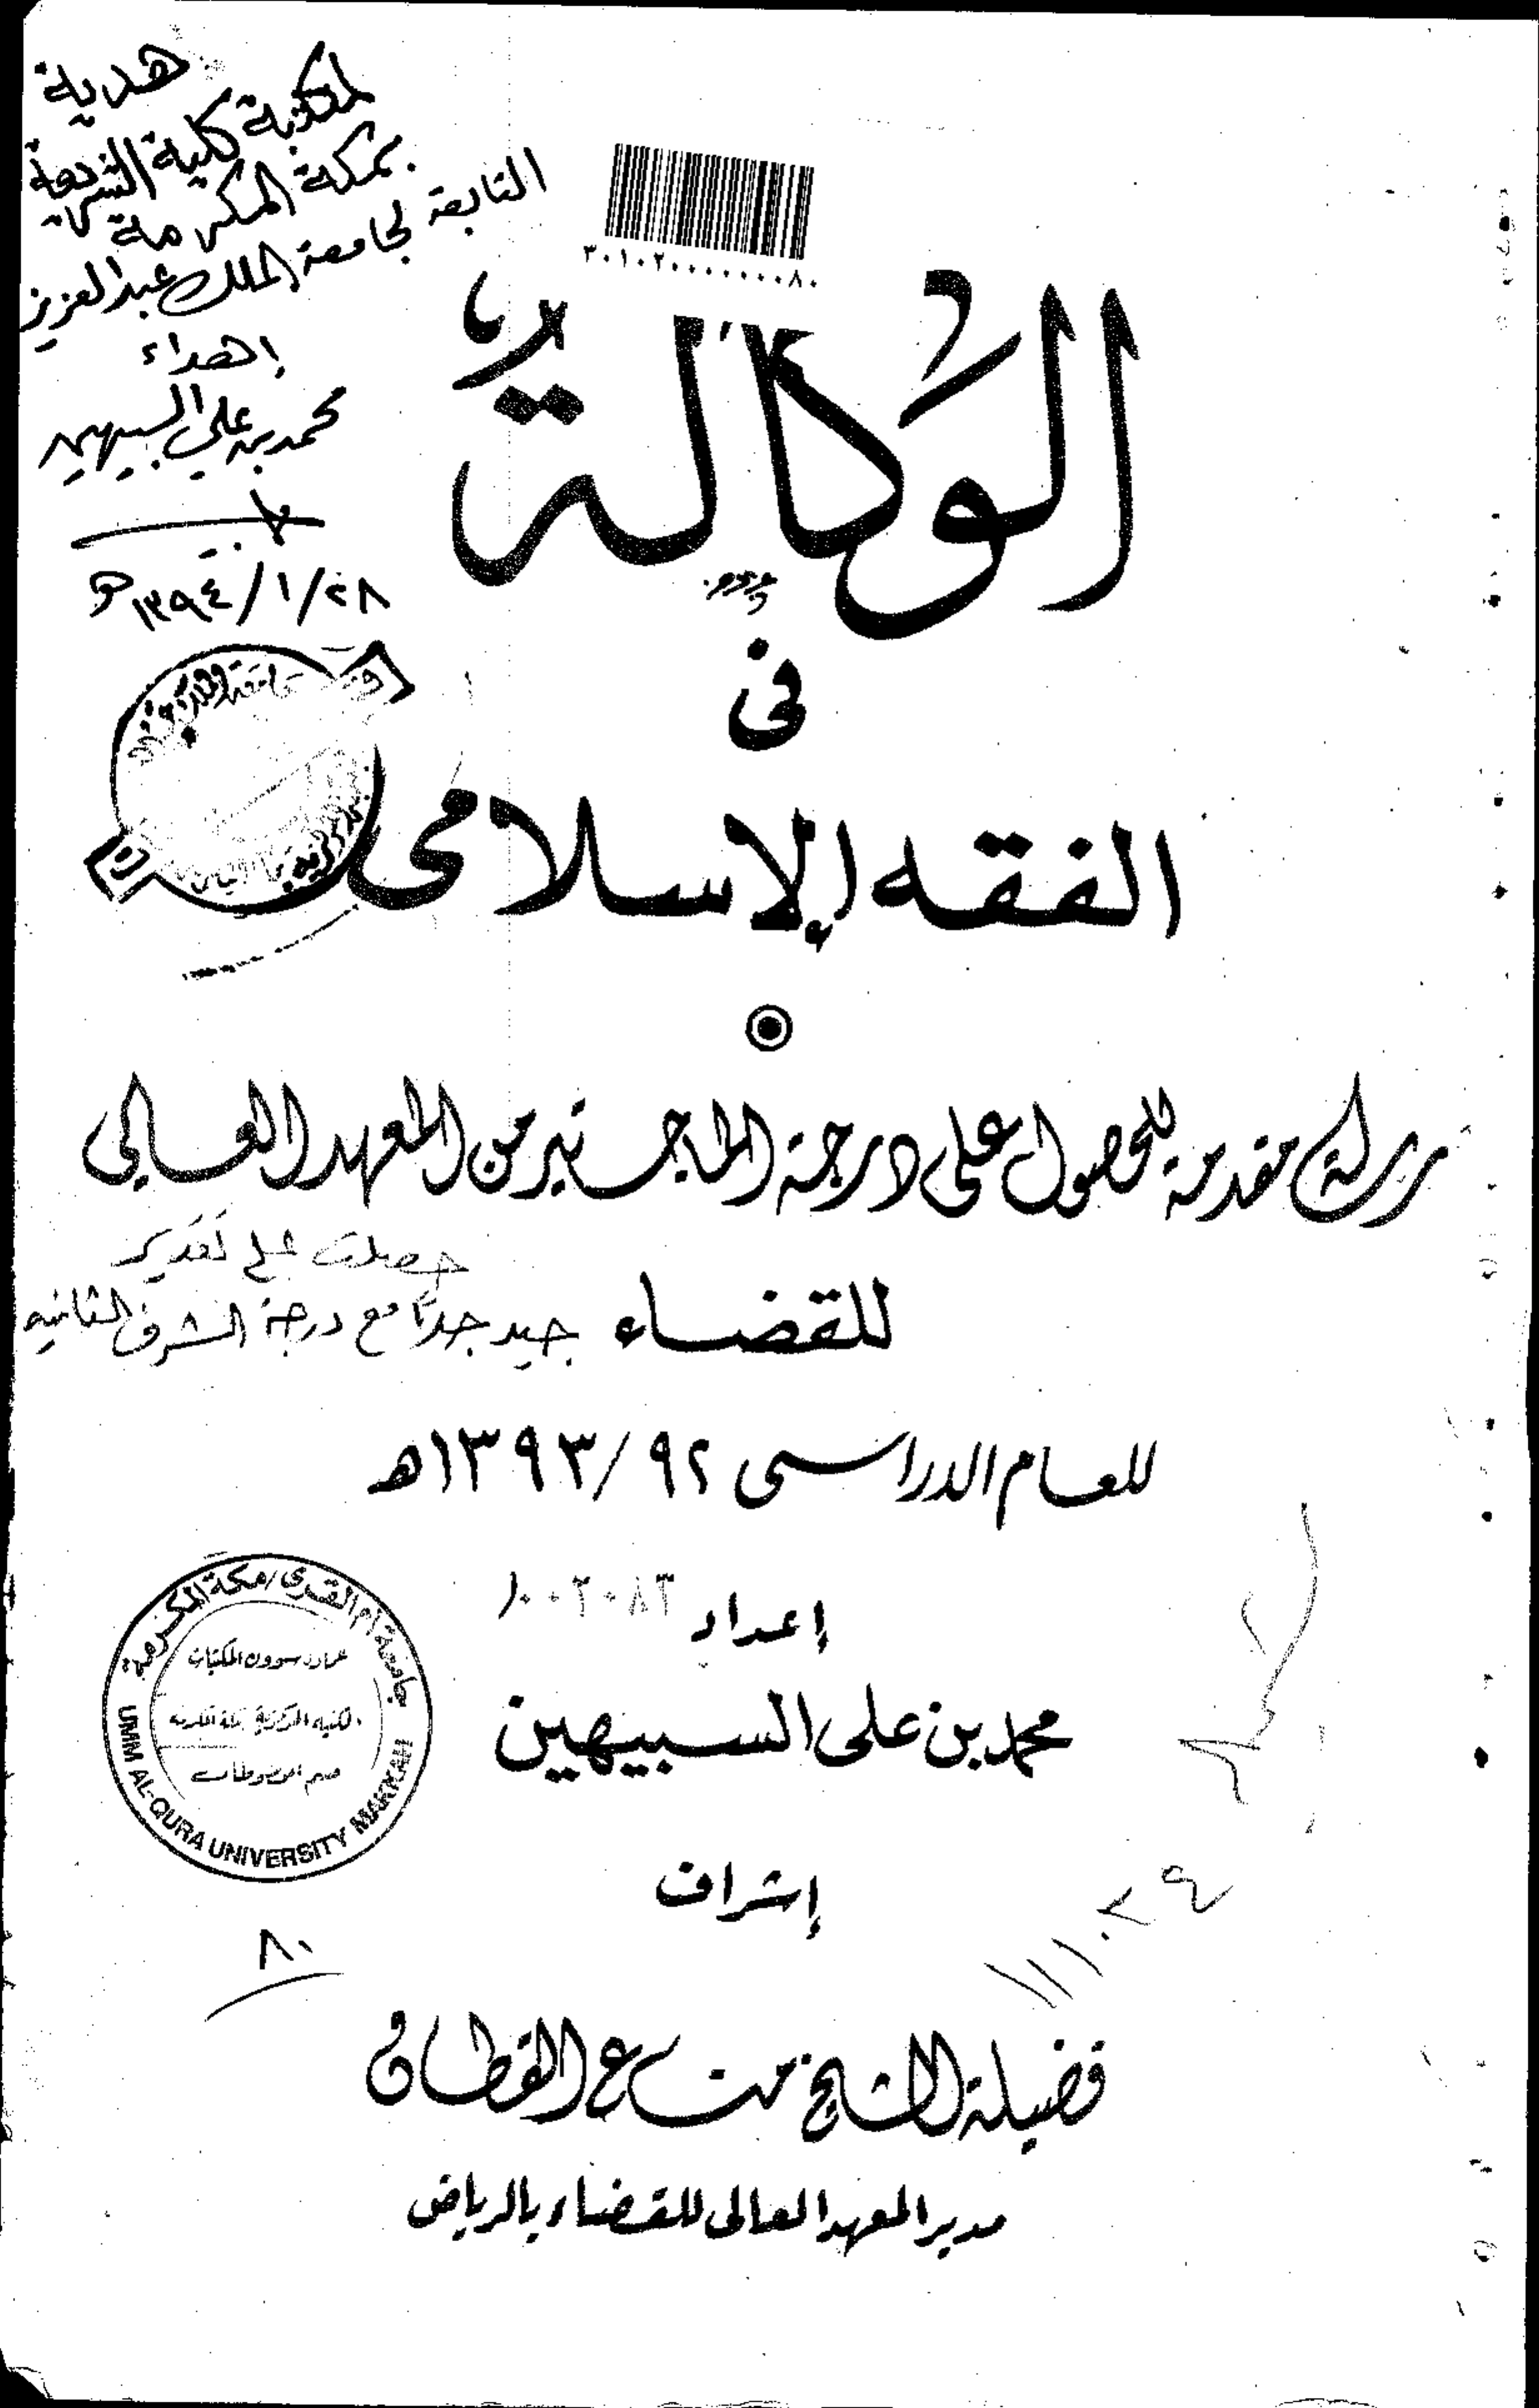 هدية
لمكتبة كلية الشريعة
بمكة المكرمة
التابعة لجامعة الملك عبدالعزيز
إهداء
محمد بن علي السبيهين
١٣٩٤/١/٢٨هـ
٣٠١٠٢٠٠٠٠٠٠٠٨٠
الوكالة
فى
الفقه الإسلامى
رسالة مقدمة للحصول على درجة الماجستير من المعهد العالي
للقضاء
حصلت على تقدير
جيد جداً مع درجة الشرف الثانيه
للعام الدراسى ٩٢/١٣٩٣هـ
إعداد
١٠٠٢٠٨٣
محمد بن على السبيهين
جامعة أم القرى / مكة المكرمة
عمادة شؤون المكتبات
المكتبة المركزية بمكة المكرمة
قسم المخطوطات
UMM AL-QURA UNIVERSITY MAKKAH
إشراف
٨٠
فضيلة الشيخ مناع القطان
مدير المعهد العالى للقضاء بالرياض